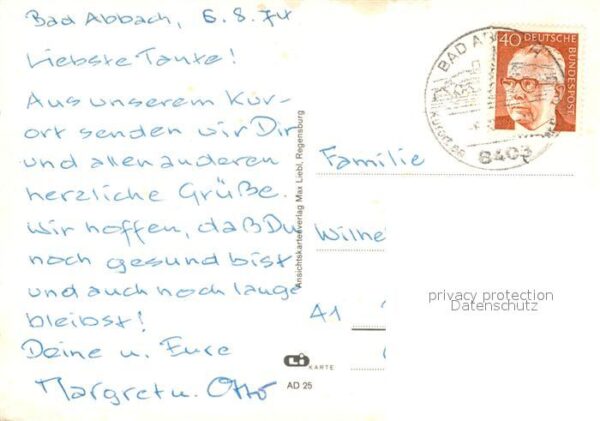 Bad Abbach, 6.8.74
Liebste Tante!
Aus unserem Kur-
ort senden wir Dir
und allen anderen
herzliche Grüße.
Wir hoffen, daß Du
noch gesund bist
und auch noch lange
bleibst!
Deine u. Eure
Margret u. Otto
Ansichtskartenverlag Max Liebl, Regensburg
Li
KARTE
AD 25
40 DEUTSCHE
BUNDESPOST
BAD
8403
Familie
Wilhe
A1
privacy protection
Datenschutz